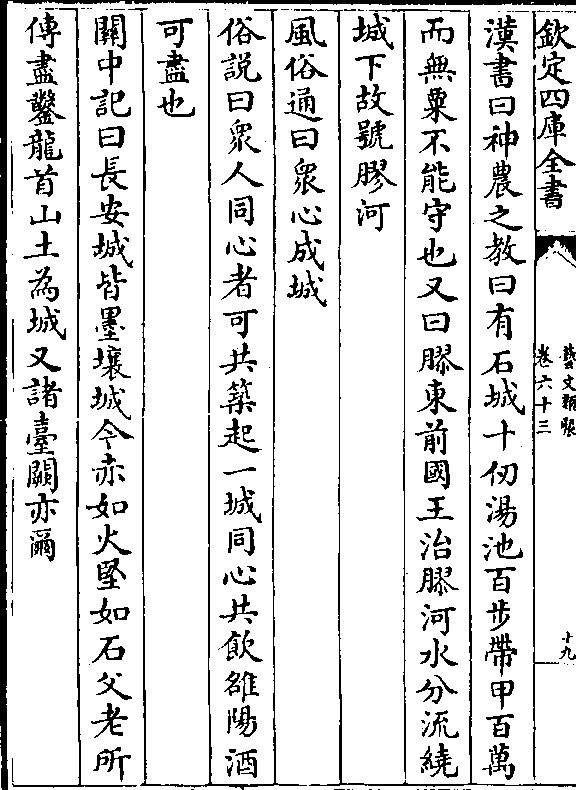 欽定四庫全書
藝文類聚
卷六十三
十九
漢書曰神農之教曰有石城十仞湯池百步帶甲百萬
而無粟不能守也又曰膠東前國王治膠河水分流繞
城下故號膠河
風俗通曰衆心成城
俗說曰衆人同心者可共築起一城同心共飲雒陽酒
可盡也
關中記曰長安城皆墨壤城今赤如火堅如石父老所
傳盡鑿龍首山土為城又諸臺闕亦爾